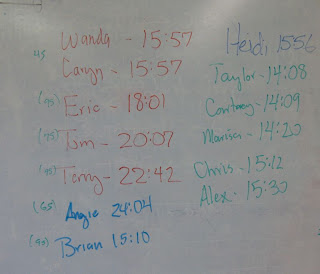 Wanda - 15:57
45 Caryn - 15:57
(95) Eric - 18:01
(95) Tom - 20:07
(95) Terry - 22:42
(65) Angie 24:04
(95) Brian 15:10
Heidi 15:56
Taylor - 14:08
Courtney - 14:09
Marisa - 14:20
Chris - 15:12
Alex - 15:30